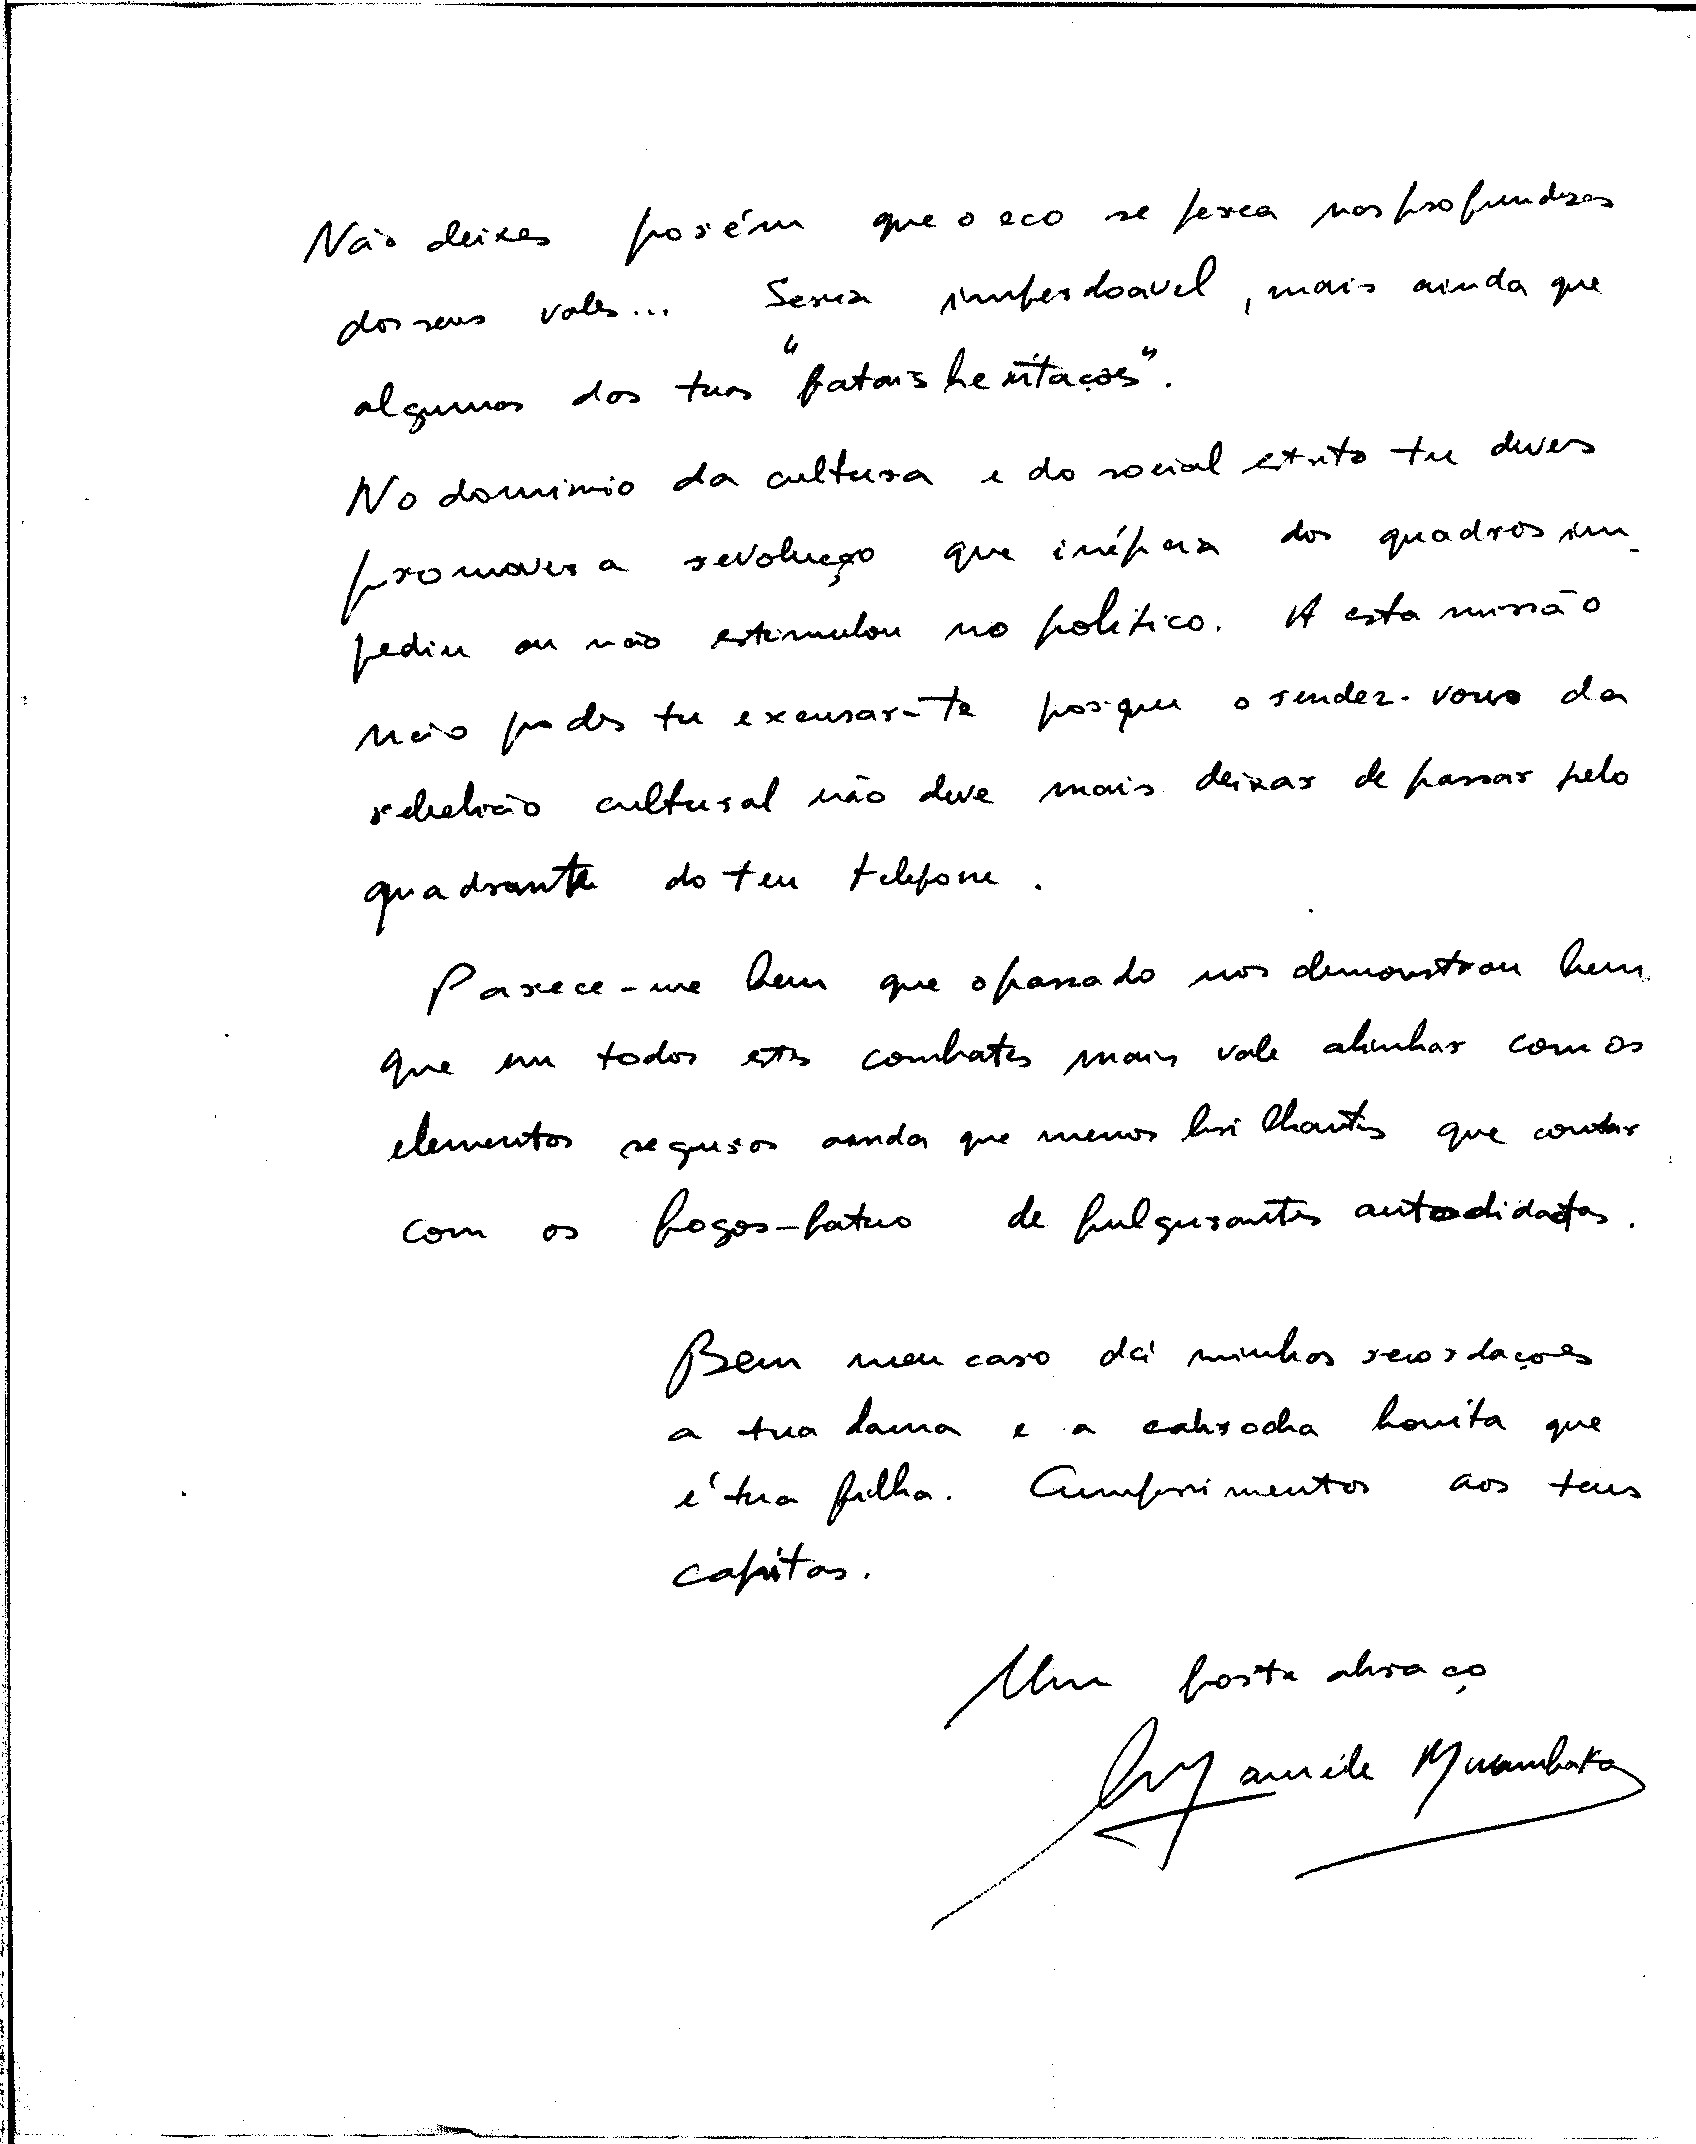 Não deixes porém que o eco se perca nas profundezas
dos seus vales... Seria imperdoavel, mais ainda que
algumas das tuas "fatais hesitações".
No dominio da cultura e do social estrito tu deves
promover a revolução que inépcia dos quadros im-
pediu ou não estimulou no politico. A esta missão
não podes tu excusar-te porque o rendez-vous da
rebelião cultural não deve mais deixar de passar pelo
quadrante do teu telefone.
Parece-me bem que o passado nos demonstrou bem
que em todos estes combates mais vale alinhar com os
elementos seguros ainda que menos brilhantes que contar
com os fogos-fatuo de fulgurantes autodidactas.
Bem meu caro dá minhas recordações
a tua dama e a cabrocha bonita que
é tua filha. Cumprimentos aos teus
capitas.
Um forte abraço